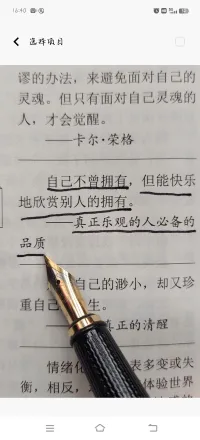 16:40
选择项目
谬的办法，来避免面对自己的
灵魂。但只有面对自己灵魂的
人，才会觉醒。
——卡尔·荣格
自己不曾拥有，但能快乐
地欣赏别人的拥有。
——真正乐观的人必备的
品质
自己的渺小，却又珍
重自己 生。
真正的清醒
情绪化 表多变或失
衡，相反， 体验世界